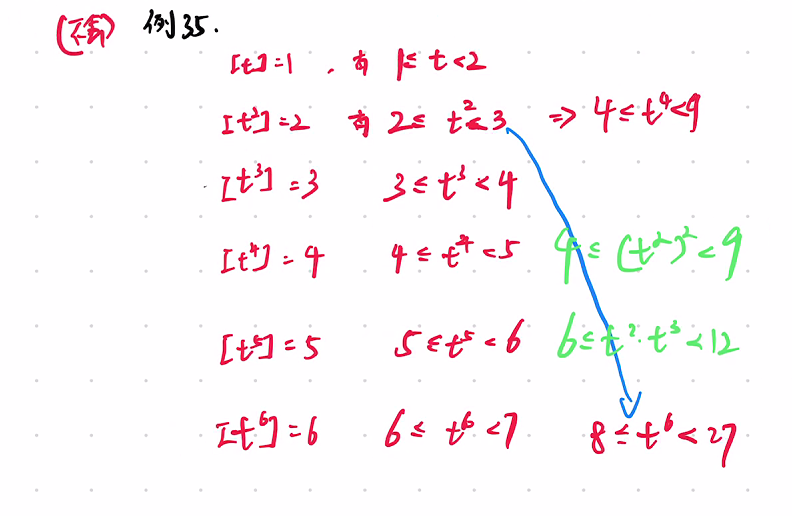 例35.
[t]=1, 有 1≤t<2
[t²]=2 有 2≤t²<3 => 4≤t⁴<9
[t³]=3 3≤t³<4
[t⁴]=4 4≤t⁴<5 4≤(t²)²<9
[t⁵]=5 5≤t⁵<6 6≤t²·t³<12
[t⁶]=6 6≤t⁶<7 8≤t⁶<27